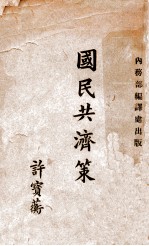 內務部編譯處出版
國民共濟策
許寶蘅